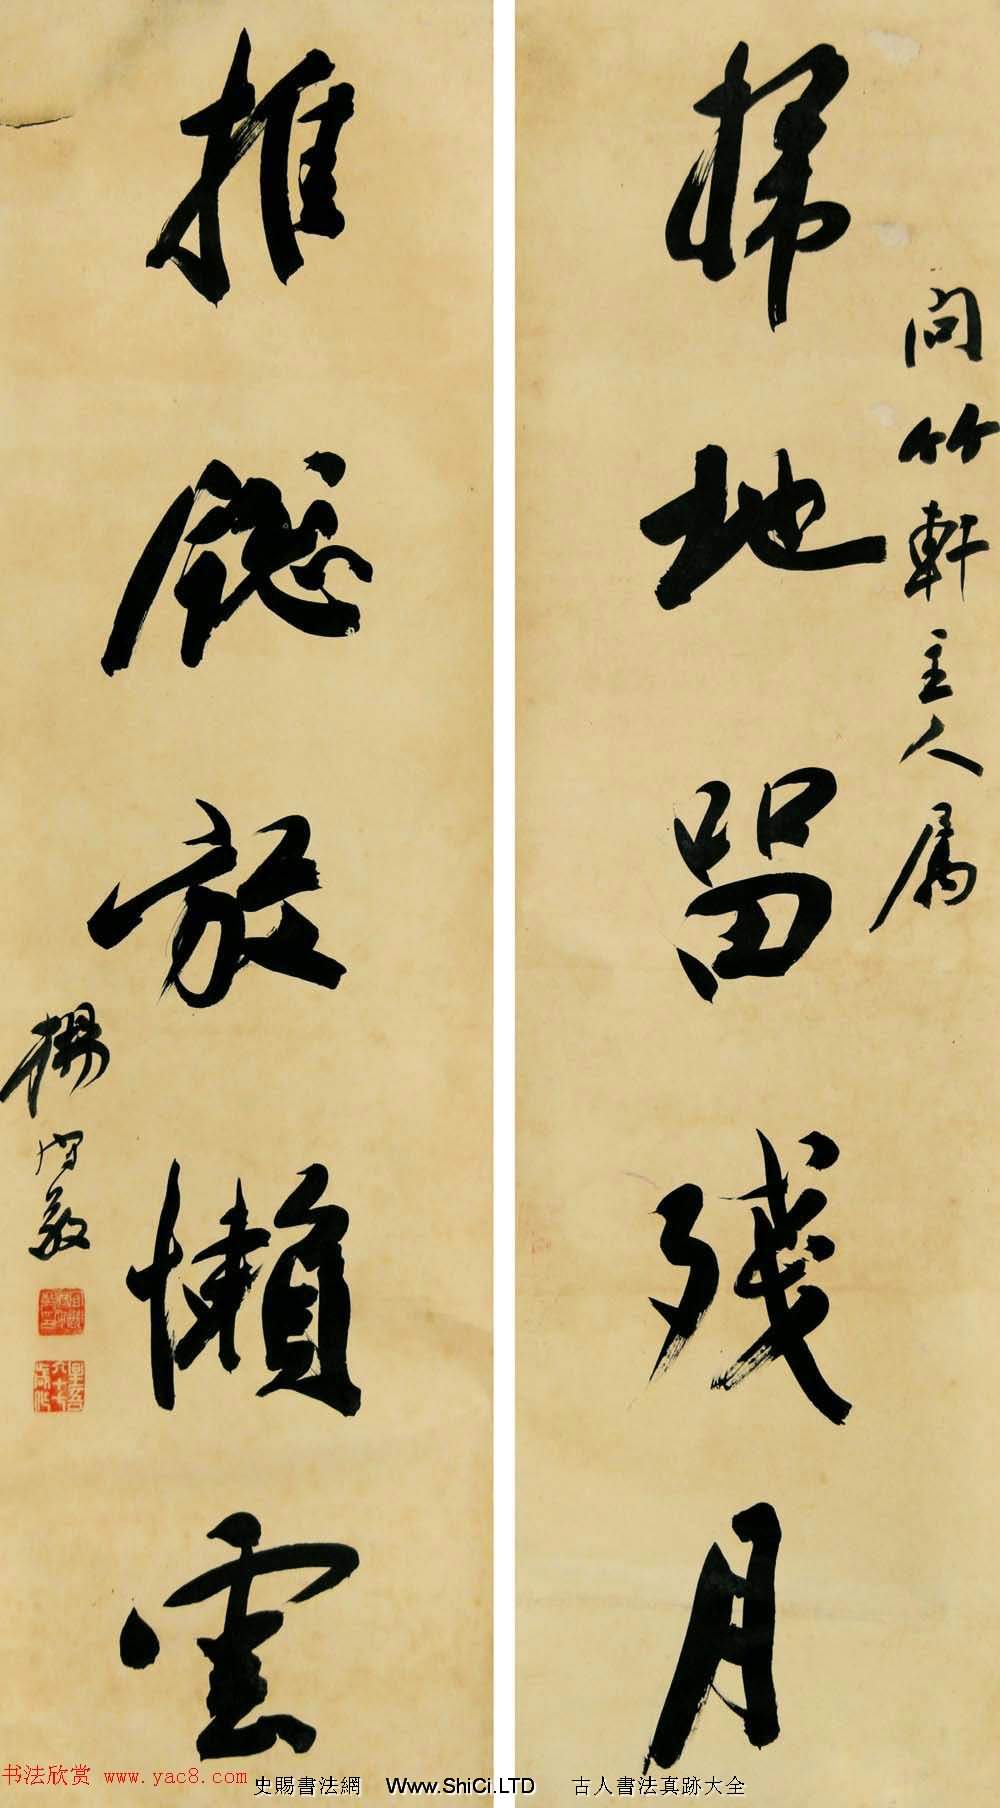 問竹軒主人属
掃地留殘月
推牕放懶雲
楊守敬
书法欣赏 www.yac8.com
史賜書法網 Www.ShiCi.LTD 古人書法真跡大全